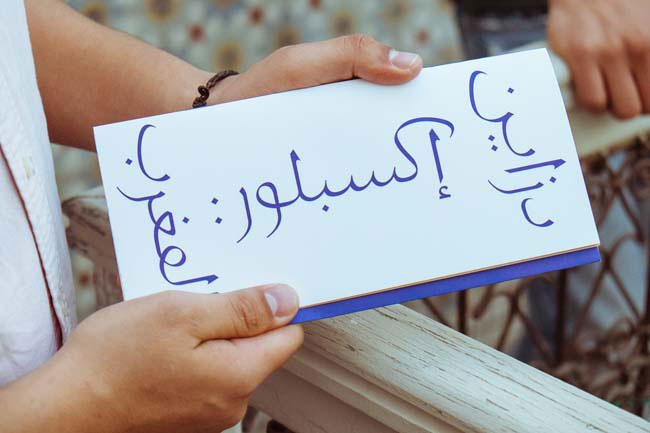 دزاين
إكسبلور:
لمغرب